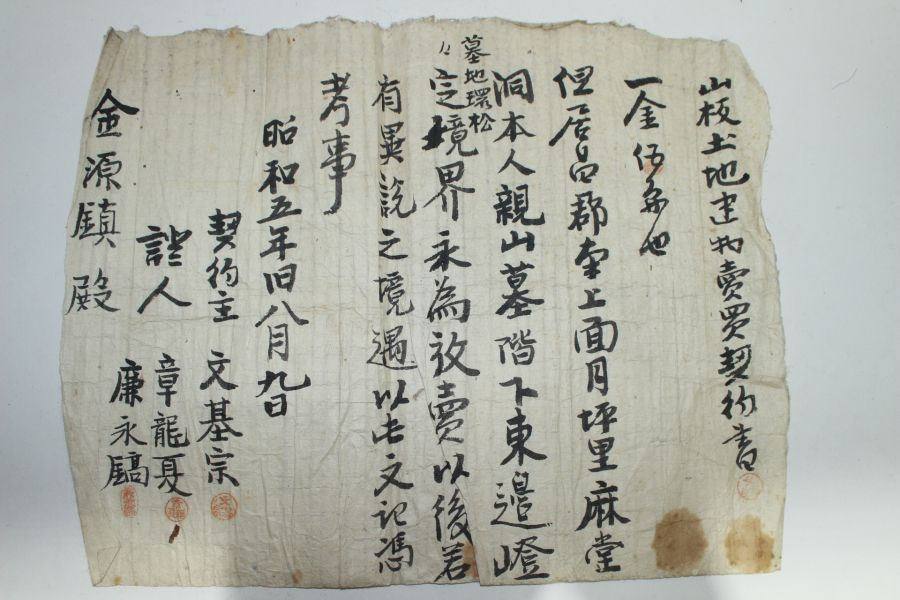 山坂土地建物賣買契約書
一金伍円也
但居昌郡南上面月坪里麻堂
洞本人親山墓階下東邊嶝
墓地環松
〃定境界永為放賣以後若
有異說之境遇以此文記憑
考事
昭和五年旧八月九日
契約主 文基宗
證人 章龍夏
廉永鎬
金源鎮 殿